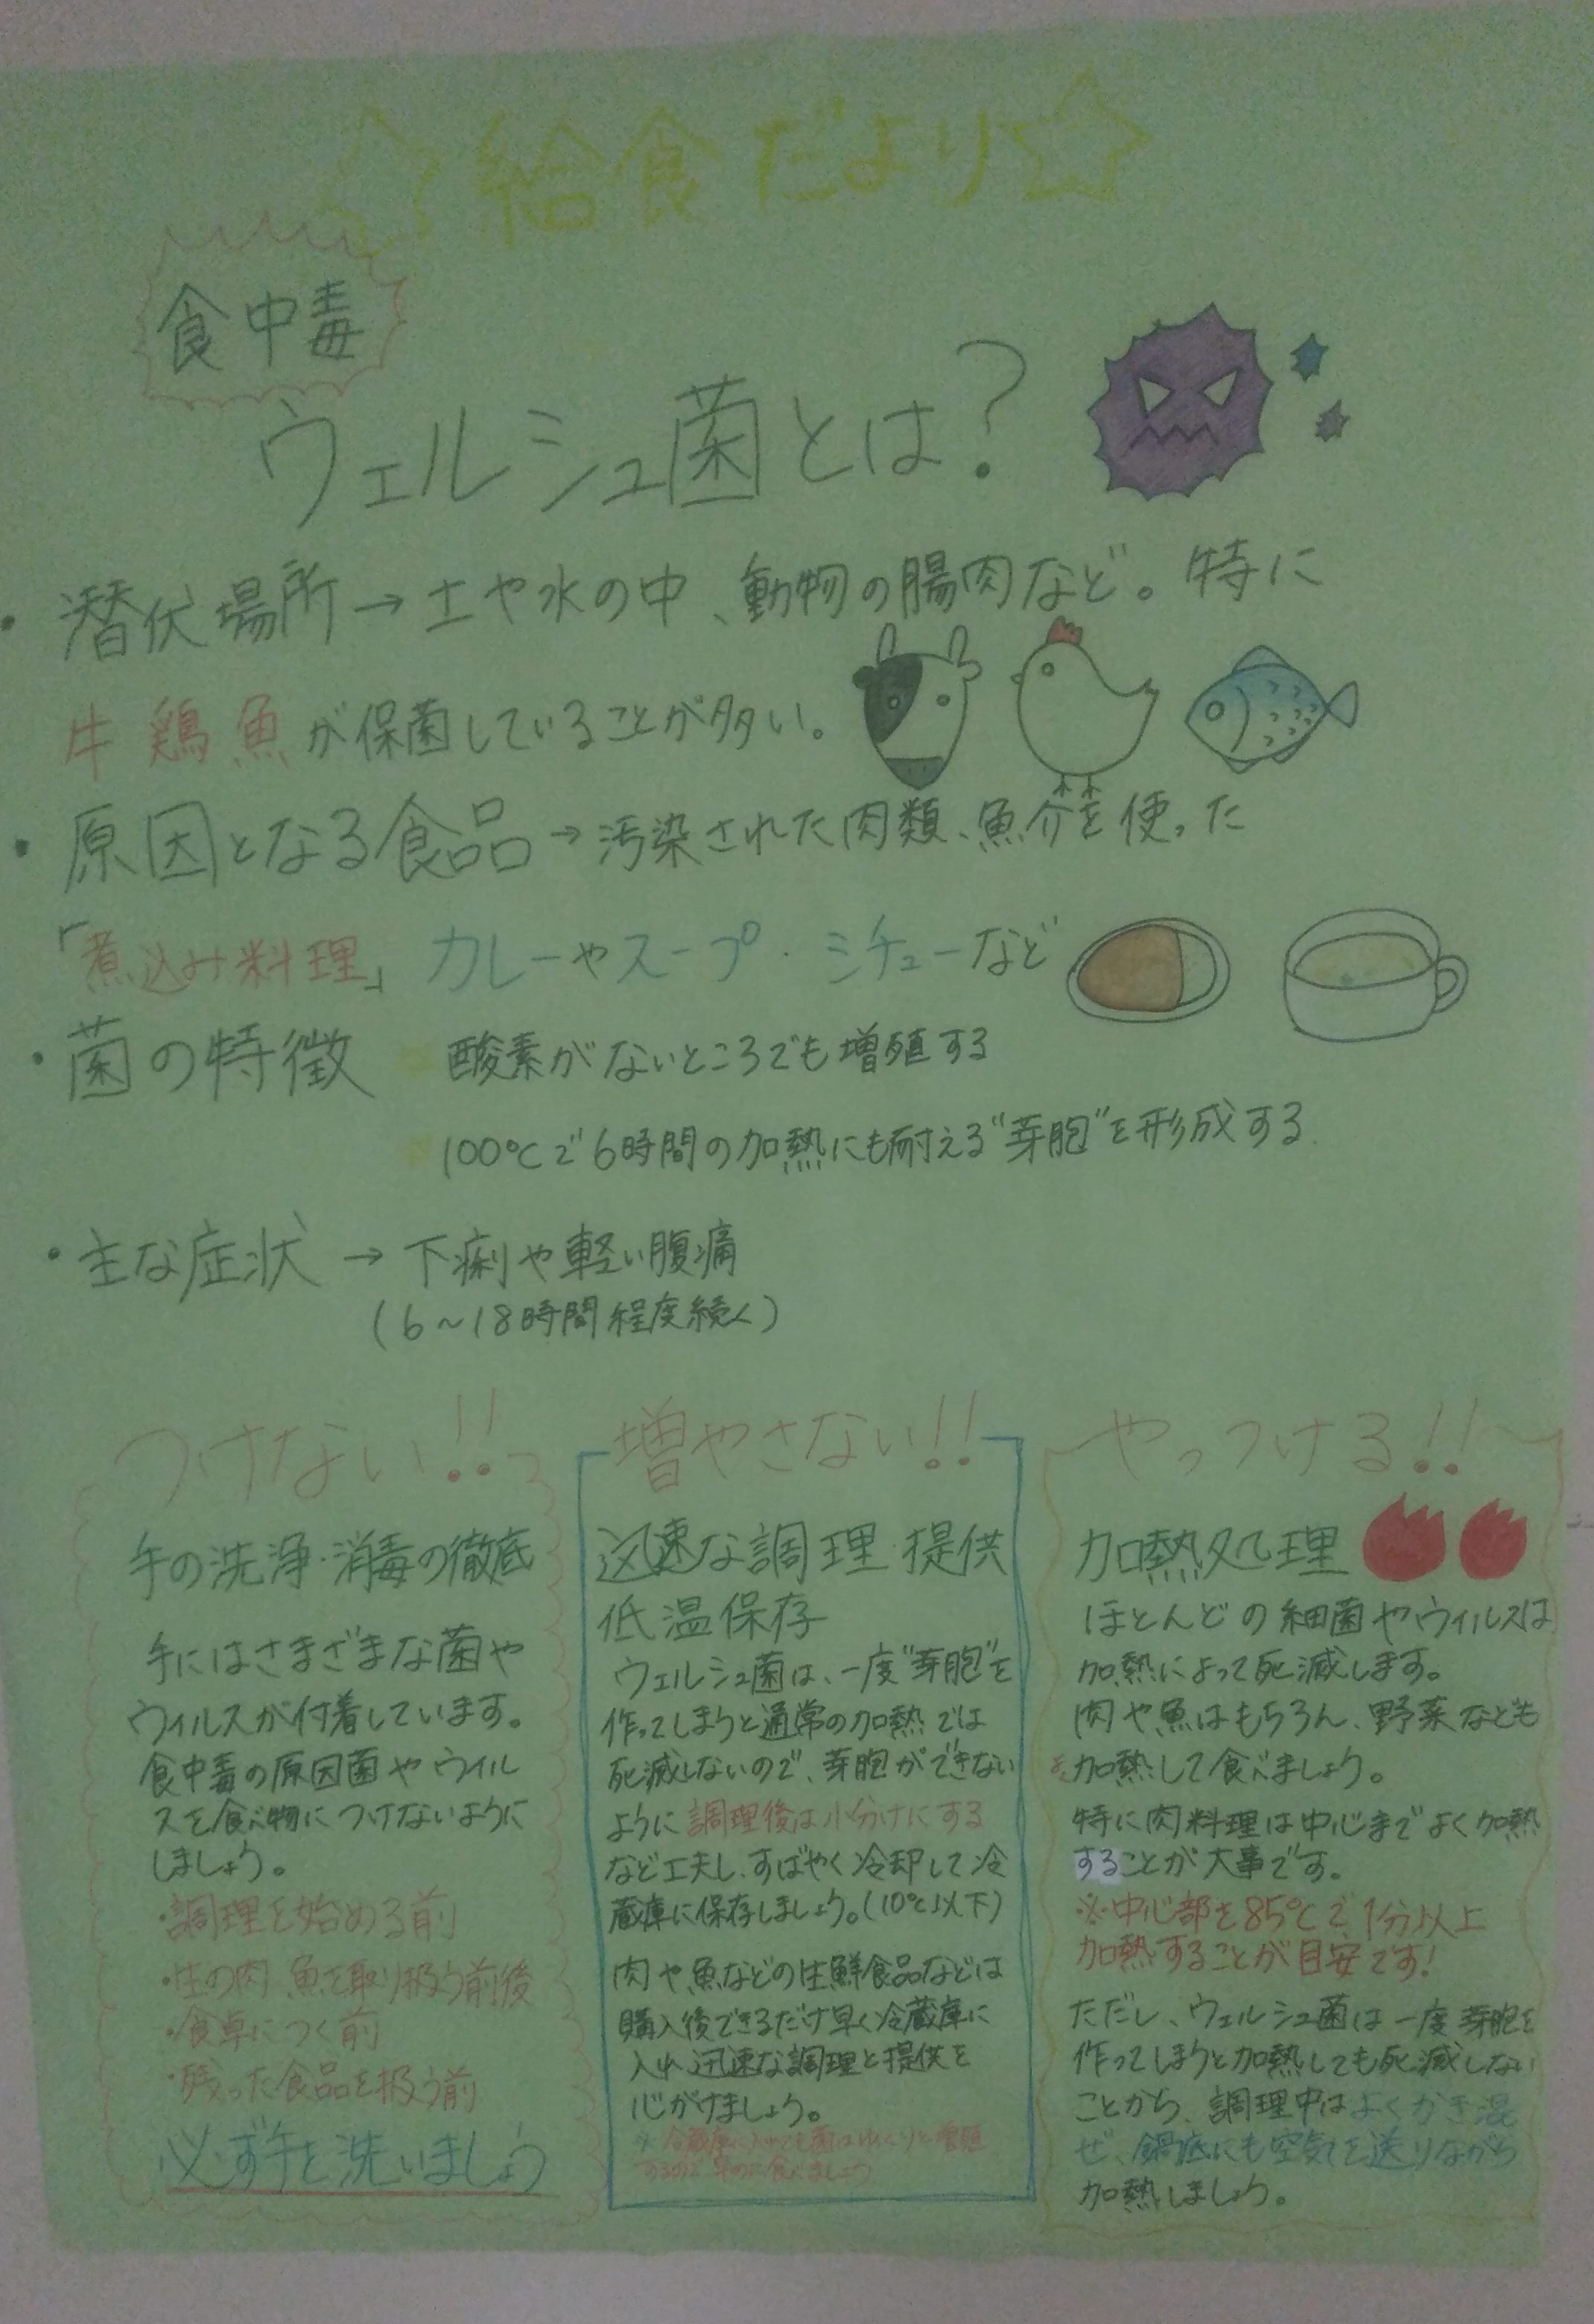 ☆給食だより☆
食中毒
ウェルシュ菌とは？
・潜伏場所→土や水の中、動物の腸肉など。特に
牛 鶏 魚が保菌していることが多い。
・原因となる食品→汚染された肉類、魚介を使った
「煮込み料理」 カレーやスープ・シチューなど
・菌の特徴 酸素がないところでも増殖する
100℃で6時間の加熱にも耐える"芽胞"を形成する
・主な症状 → 下痢や軽い腹痛
(6～18時間程度続く)
つけない!!
手の洗浄・消毒の徹底
手にはさまざまな菌や
ウィルスが付着しています。
食中毒の原因菌やウィル
スを食べ物につけないように
しましょう。
・調理を始める前
・生の肉 魚を取り扱う前後
・食卓につく前
・残った食品を扱う前
必ず手を洗いましょう
増やさない!!
迅速な調理・提供
低温保存
ウェルシュ菌は、一度"芽胞"を
作ってしまうと通常の加熱では
死滅しないので、芽胞ができない
ように調理後は小分けにする
など工夫し、すばやく冷却して冷
蔵庫に保存しましょう。(10℃以下)
肉や魚などの生鮮食品などは
購入後できるだけ早く冷蔵庫に
入れ、迅速な調理と提供を
心がけましょう。
※冷蔵庫に入れても菌はゆっくりと増殖
するので早めに食べましょう
やっつける!!
加熱処理
ほとんどの細菌やウィルスは
加熱によって死滅します。
肉や魚はもちろん、野菜なども
加熱して食べましょう。
特に肉料理は中心までよく加熱
することが大事です。
※中心部を85℃で1分以上
加熱することが目安です!
ただし、ウェルシュ菌は一度芽胞を
作ってしまうと加熱しても死滅しない
ことから、調理中はよくかき混
ぜ、鍋底にも空気を送りながら
加熱しましょう。